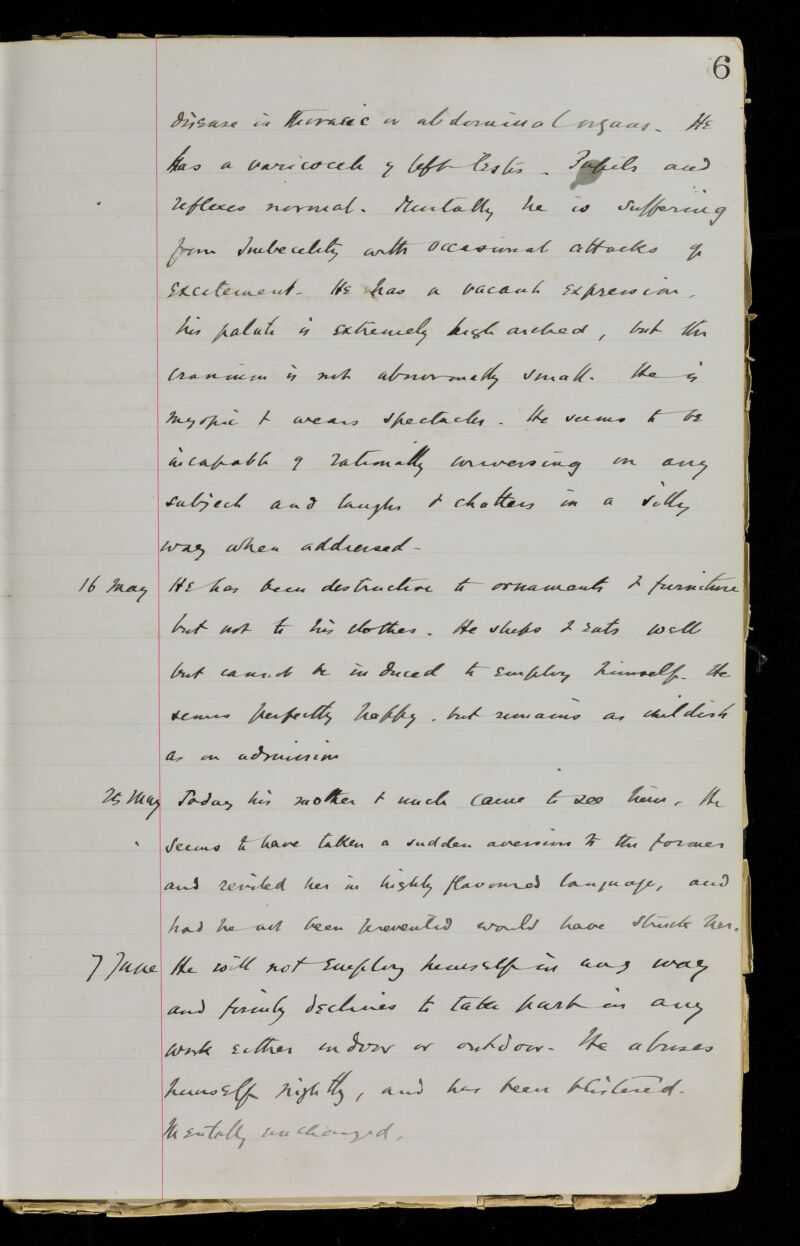 6
disease in thoracic or abdominal organs. He
has a varicocele of left testis. Pupils and
reflexes normal. Mentally he is suffering
from Imbecility with occasional attacks of
excitement. He has a vacant expression,
his palate is extremely high arched, but the
cranium is not abnormally small. He is
myopic & wears spectacles. He seems to be
incapable of rationally conversing on any
subject and laughs & chatters in a silly
way when addressed.
16 May He has been destructive to ornaments & furniture
but not to his clothes. He sleeps & eats well
but cannot be induced to employ himself. He
seems perfectly happy, but remains as childish
as on admission
25 May Today his mother & uncle came to see him. He
seems to have taken a sudden aversion to the former
and reviled her in highly flavoured language, and
had he not been prevented would have struck her.
7 June He will not employ himself in any way
and firmly declines to take part in any
work either indoor or outdoor. He abuses
himself nightly, and has been blistered.
Mentally unchanged.